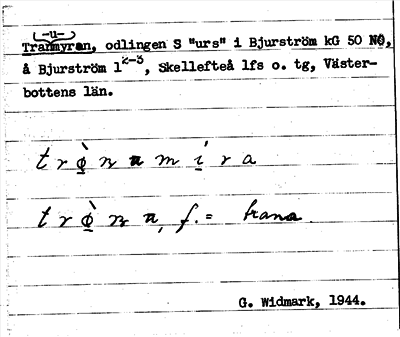 -u-
Tranmyran, odlingen S "urs" i Bjurström kG 50 NØ,
å Bjurström 1²⁻³, Skellefteå lfs o. tg, Väster-
bottens län.
trø̀nnmíra
trø̀nn, f. = trana.
G. Widmark, 1944.